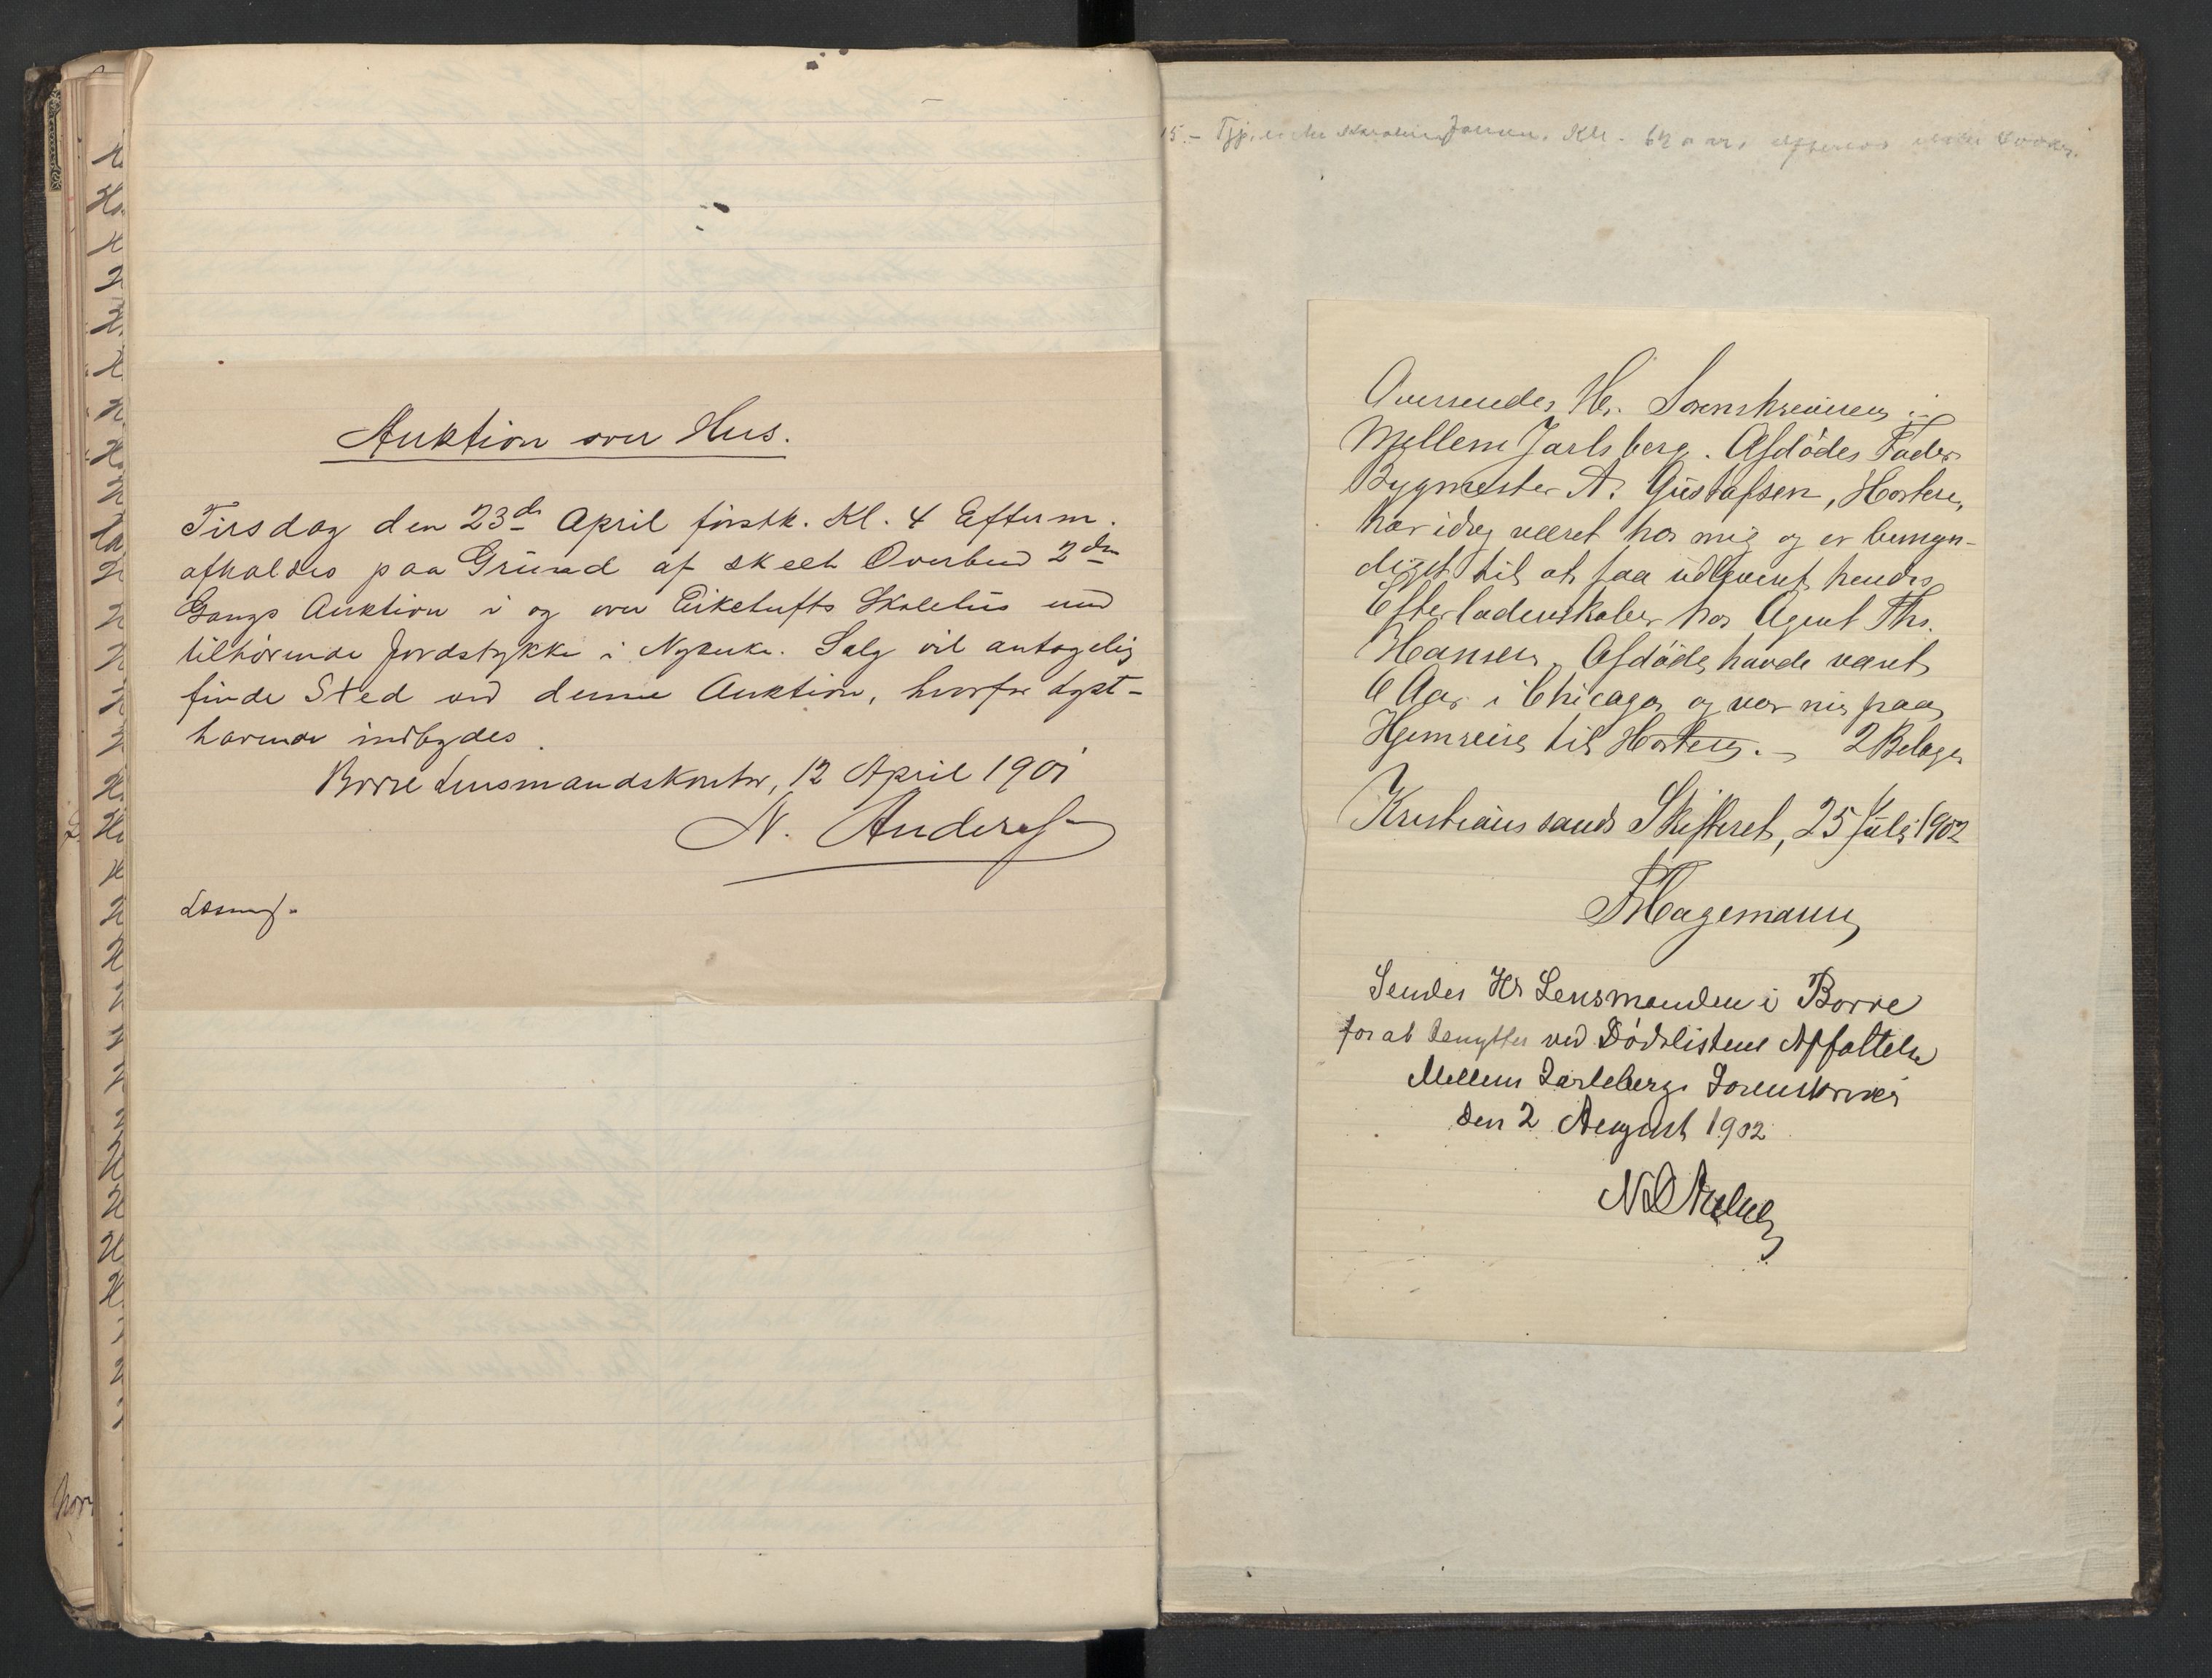 Auktion over Hus.
Tirsdag den 23de April førstk. Kl. 4 Efterm.
afholdes paa Grund af skeet Overbud 2den
Gangs Auktion i og over Eiketufts Skolehus med
tilhørende Jordstykke i Nykirke. Salg vil antagelig
finde Sted ved denne Auktion, hvorfor Lyst-
havende indbydes.
Borre Lensmandskontor, 12 April 1901
N. Anders
15 - Karoline Jansen. 62 aar
Oversendes Hr. Sorenskriveren i
Mellem Jarlsberg. Afdødes Fader
Bygmester A. Gustafsen, Horten,
har idag været hos mig og er bemyn-
diget til at faa udleveret hendes
Efterladenskaber hos Agent Ths.
Hansen. Afdøde havde været
6 Aar i Chicago og var nu paa
Hjemreise til Horten. - 2 Bilage
Kristianssands Skifteret, 25 Juli 1902
Hagemann
Sendes Hr Lensmanden i Borre
for at benyttes ved Dødslistens Affattelse
Mellem Jarlsbergs Sorenskriveri
den 2 August 1902